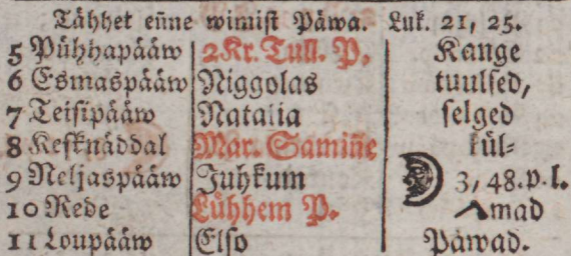 Tähhet eñne wimist Päwa. Luk. 21, 25.
5 Pühhapääw 2. Kr. Tull. P. Kange
6 Esmaspääw Niggolas tuulsed,
7 Teisipääw Natalia selged
8 Kesknäddal Mar. Samiñe kül-
9 Neljaspääw Juhkum 3, 48. p. l.
10 Rede Lühhem P. mad
11 Loupääw Elso Päwad.